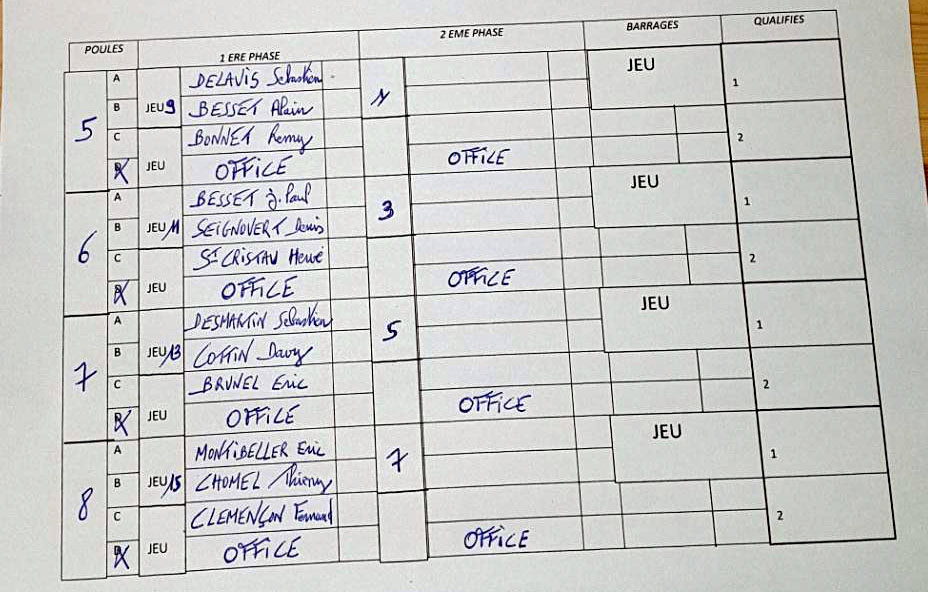 POULES 1 ERE PHASE 2 EME PHASE BARRAGES QUALIFIES
5 A JEU 9 DELAVIS Sébastien 1 JEU 1
B BESSET Alain
C JEU BONNET Remy 2
D OFFICE OFFICE
6 A JEU 11 BESSET J. Paul 3 JEU 1
B SEIGNOVERT Denis
C JEU ST CRISTAU Hervé 2
D OFFICE OFFICE
7 A JEU 13 DESMARTIN Sébastien 5 JEU 1
B COTTIN Davy
C JEU BRUNEL Eric 2
D OFFICE OFFICE
8 A JEU 15 MONTIBELLER Eric 7 JEU 1
B CHOMEL Thierry
C JEU CLEMENÇON Fernand 2
D OFFICE OFFICE